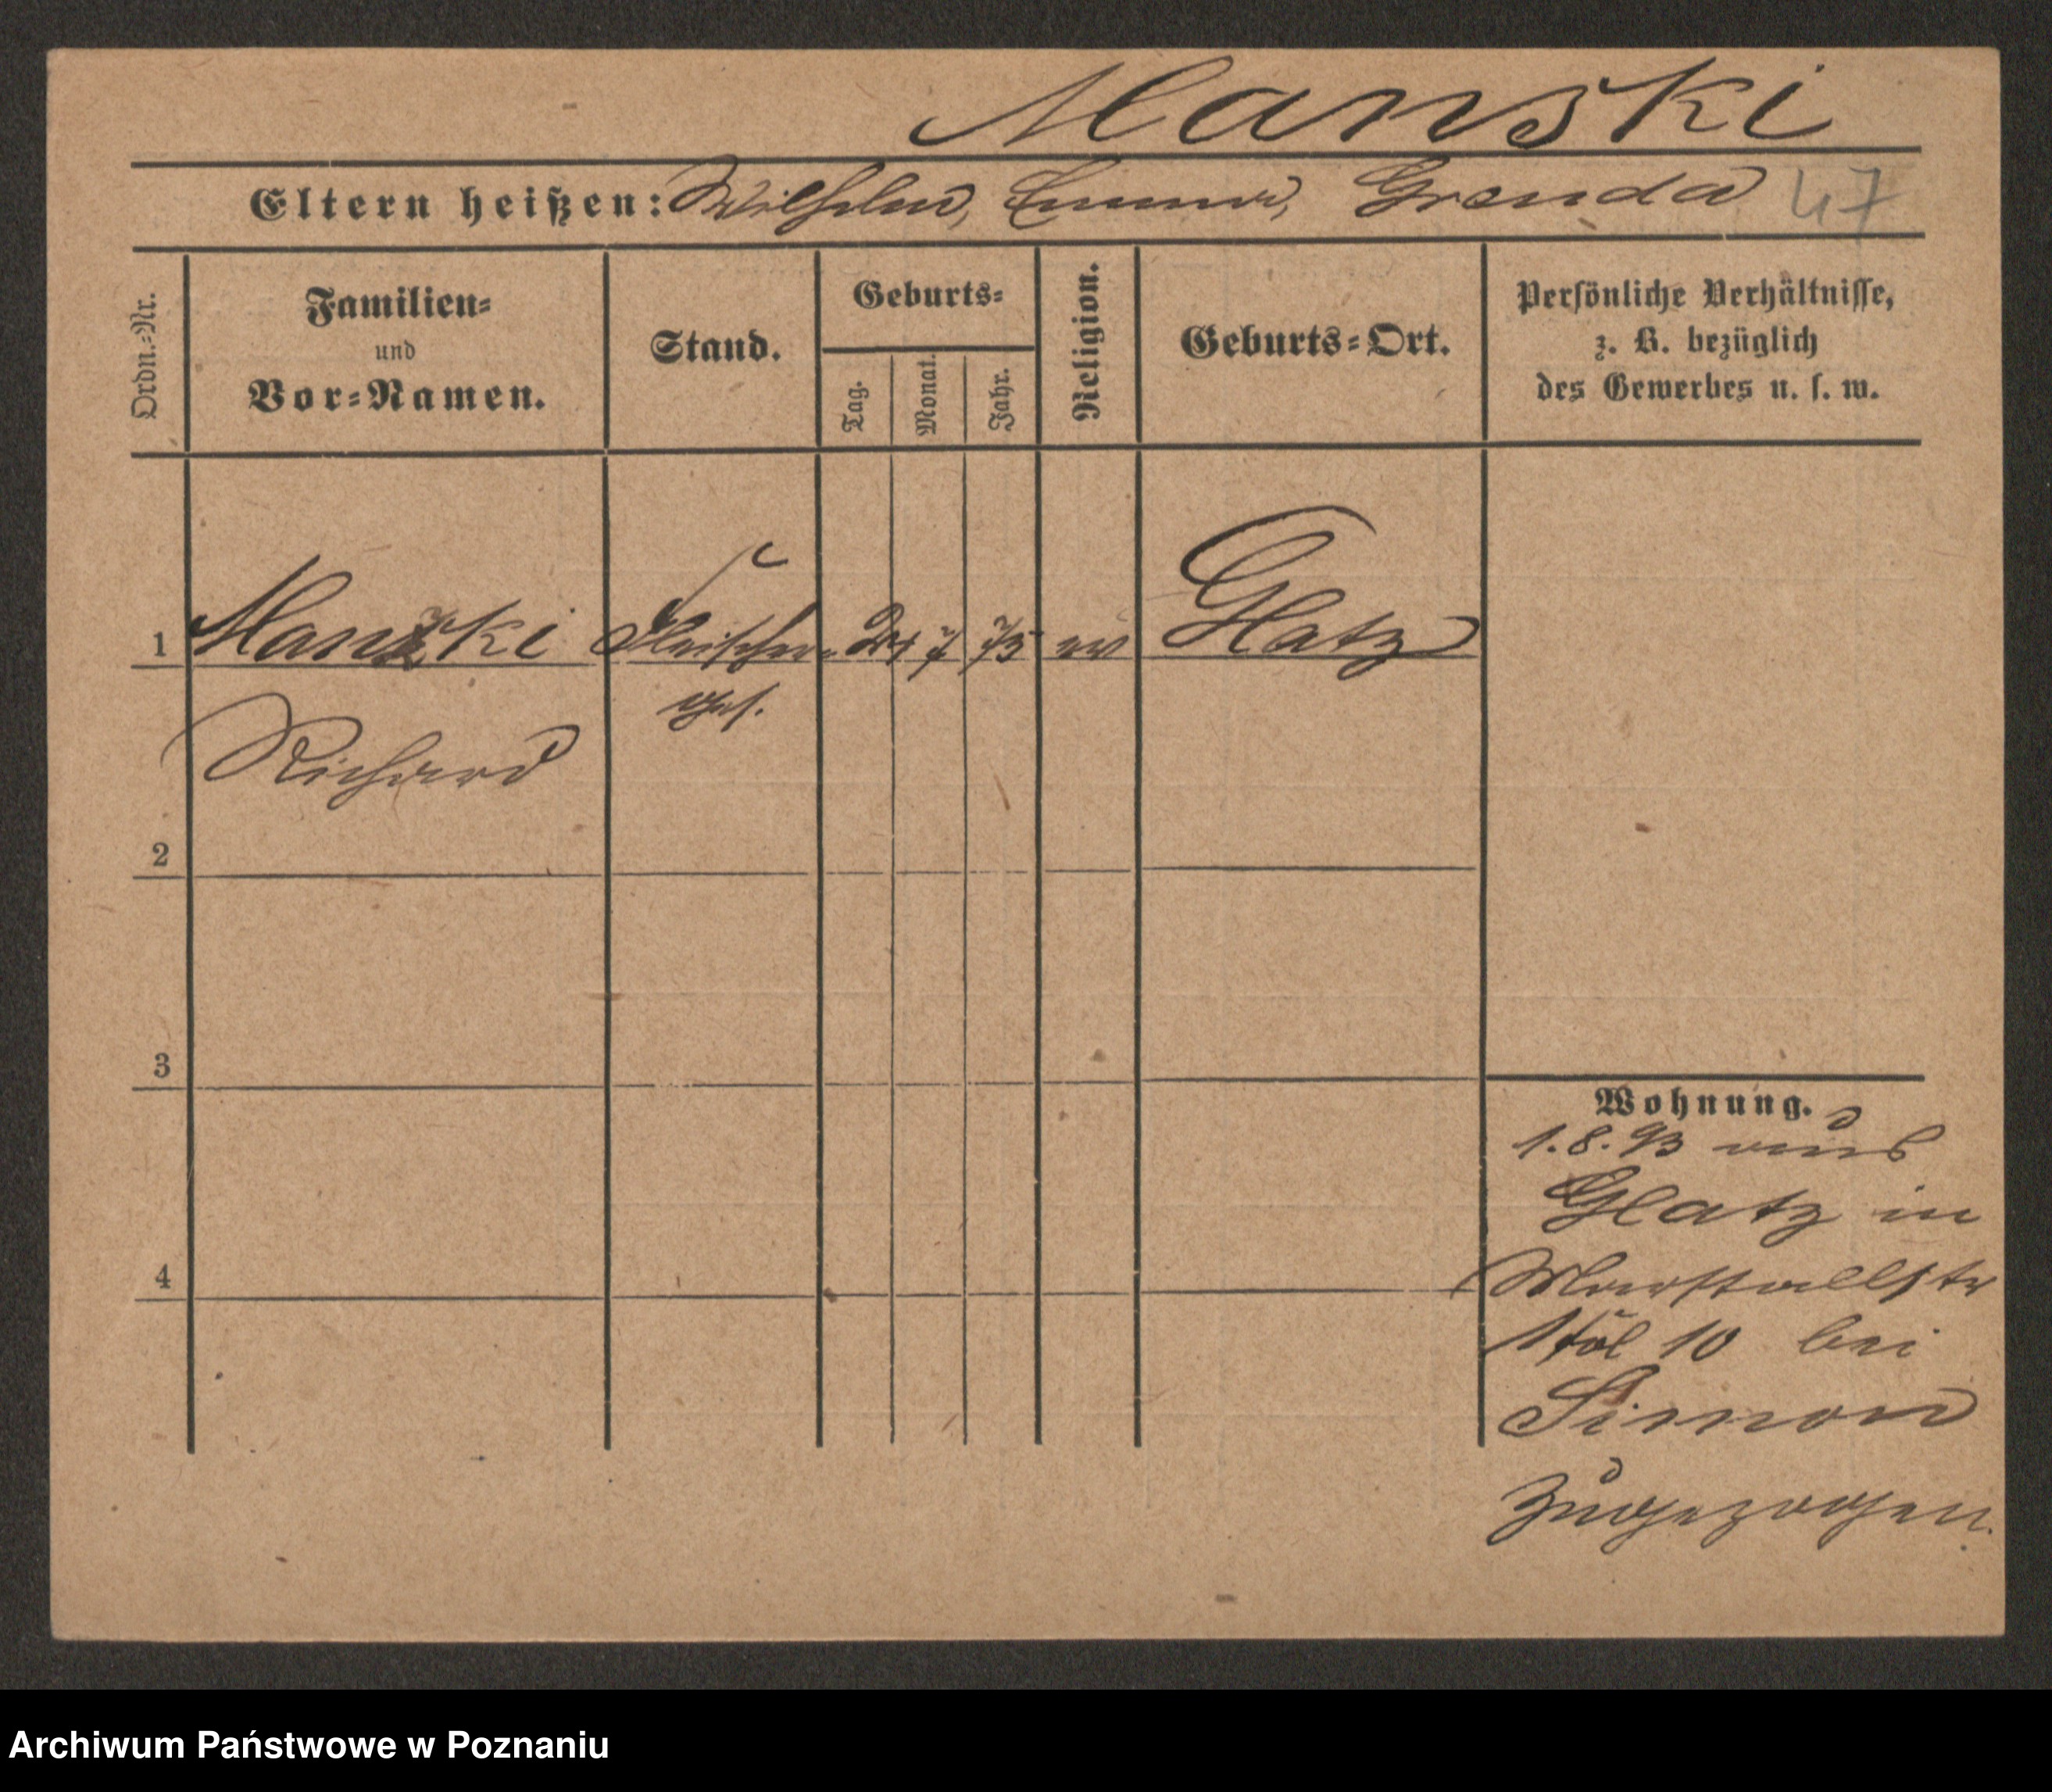 Manski
Eltern heißen: Wilhelm, Emma, Grenda 47
Ordn.-Nr.
Familien-
und
Vor-Namen.
Stand.
Geburts-
Tag.
Monat.
Jahr.
Religion.
Geburts-Ort.
Persönliche Verhältnisse,
z. B. bezüglich
des Gewerbes u. s. w.
1 Manski Fleischer 24 7 73 ev Glatz
ges.
Richard
2
3
4
Wohnung.
1.8.93 aus
Glatz in
Marstallstr
10 bei
Simon
zugezogen.
Archiwum Państwowe w Poznaniu